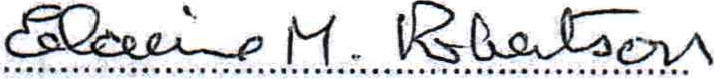 Elaine M. Robertson